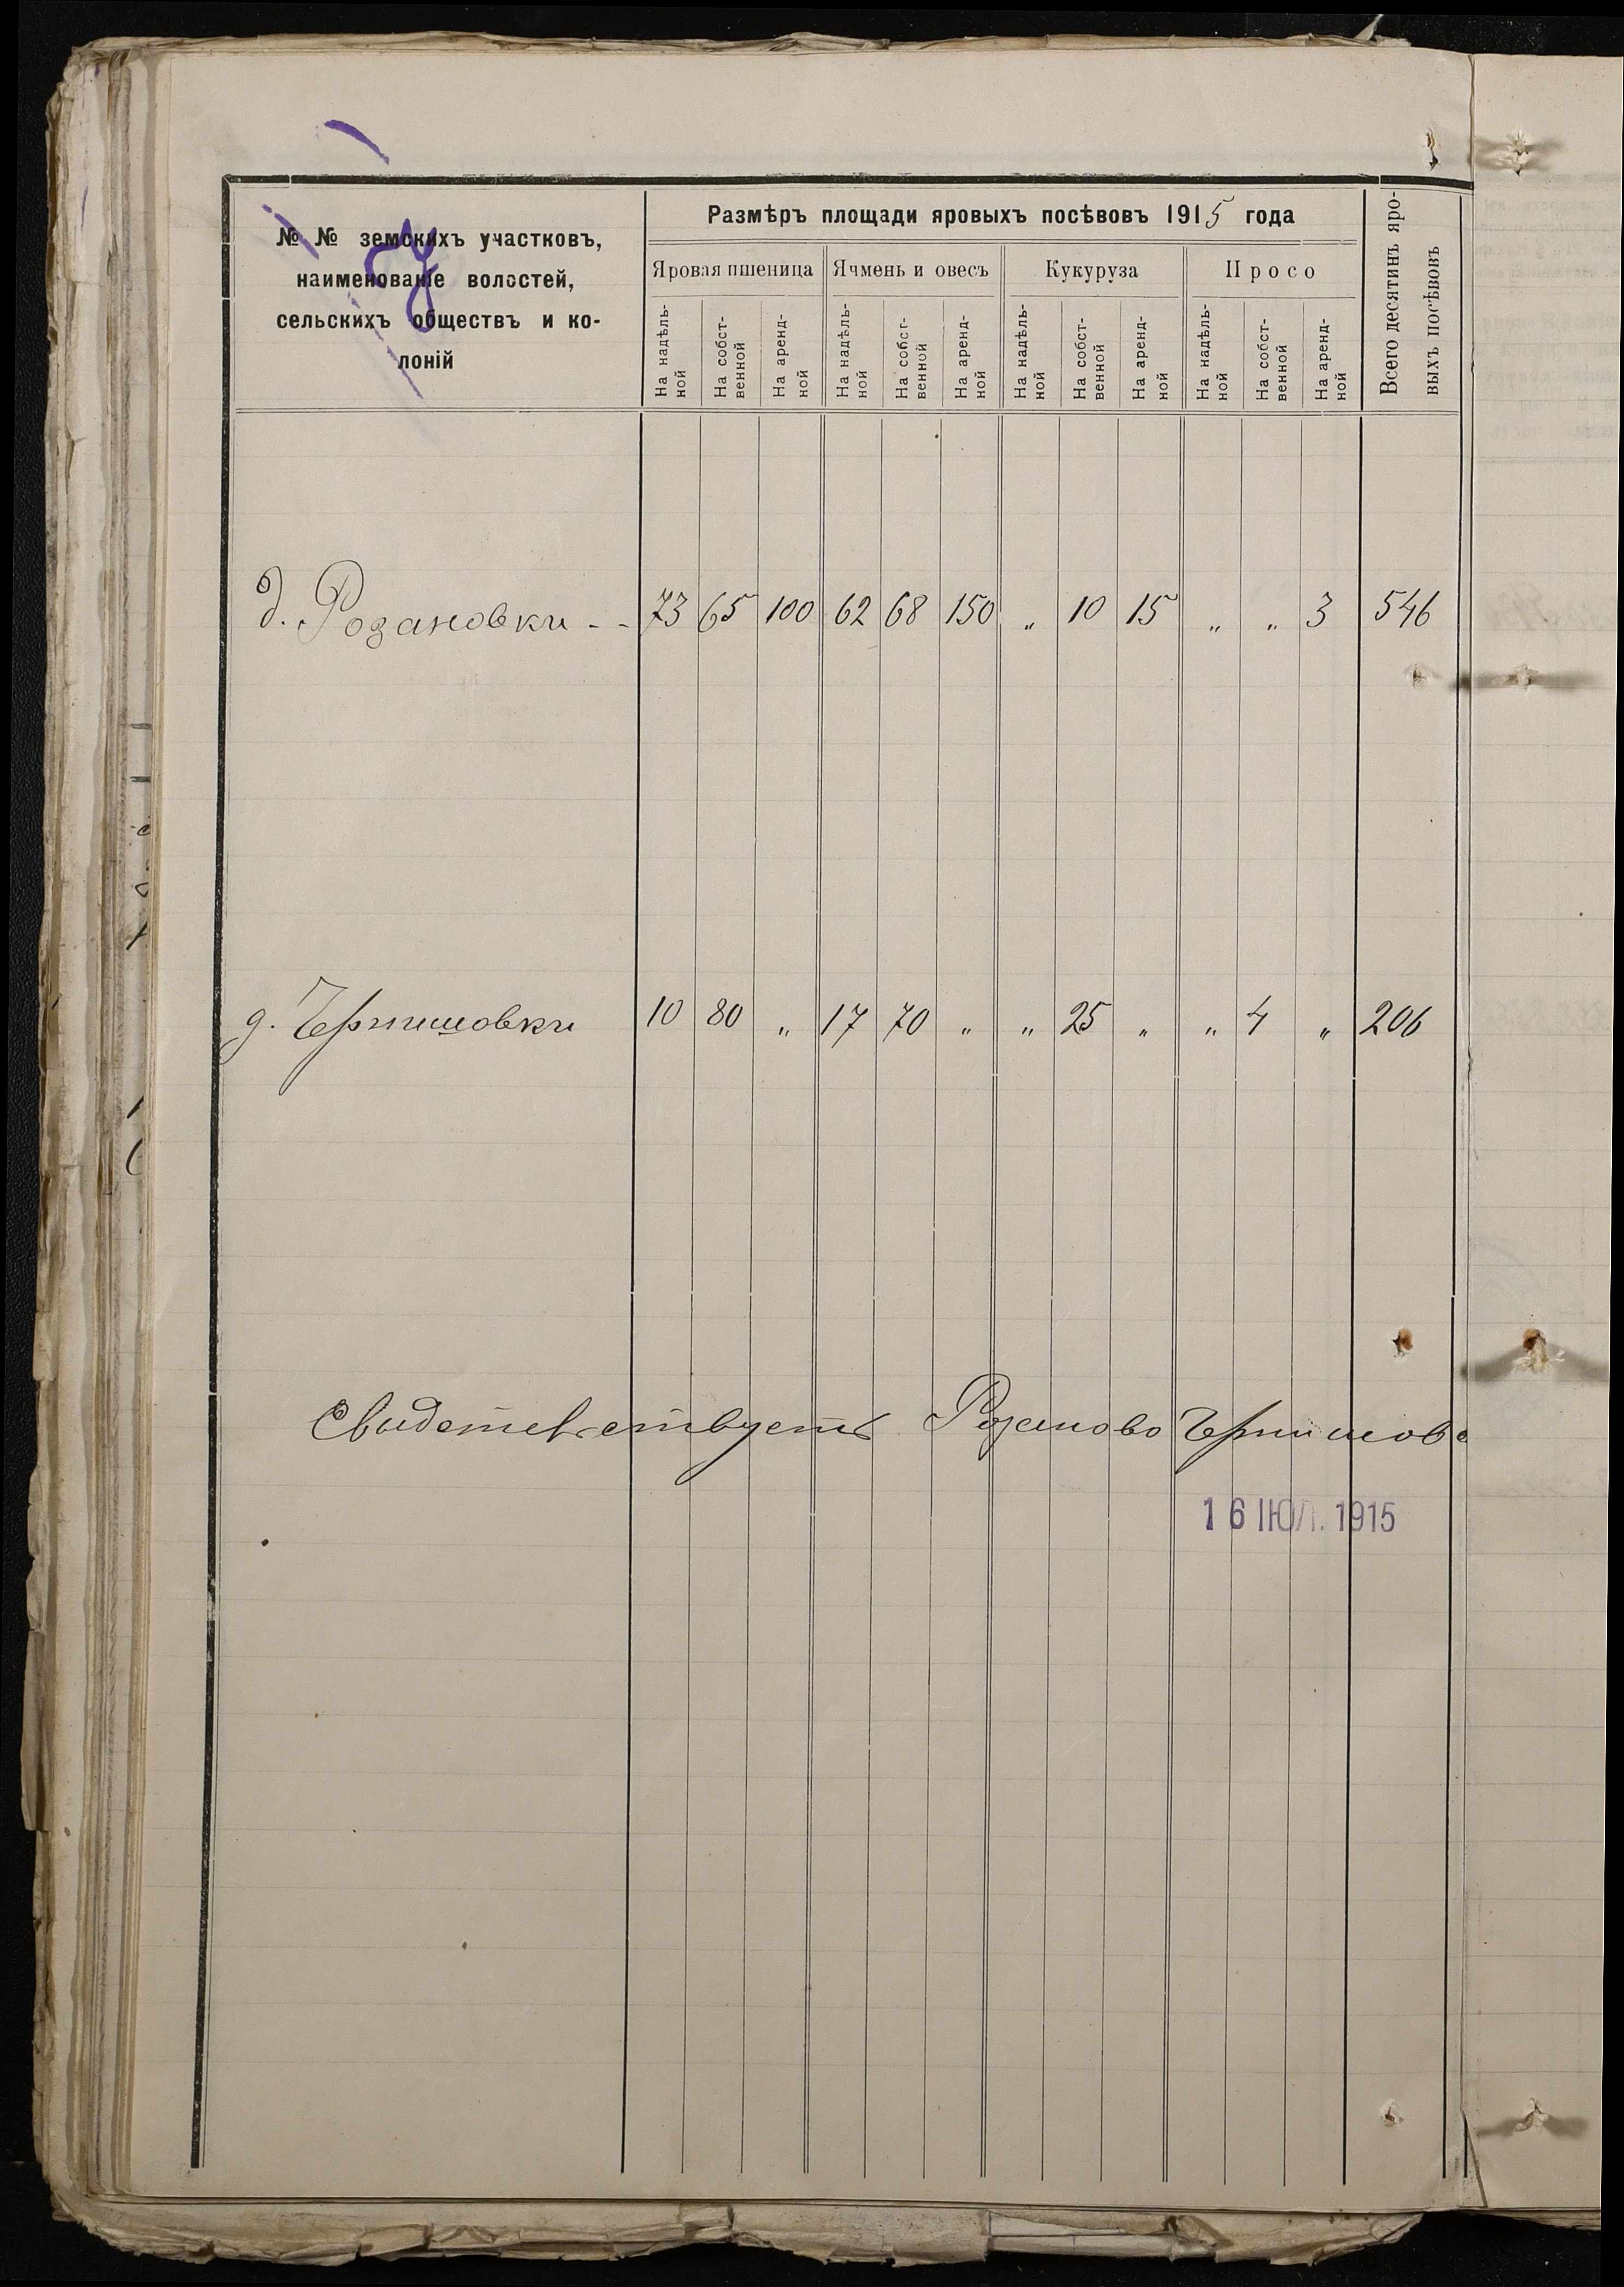 № № земскихъ участковъ,
наименованіе волостей,
сельскихъ обществъ и ко-
лоній
Размѣръ площади яровыхъ посѣвовъ 1915 года
Яровая пшеница Ячмень и овесъ Кукуруза Просо
На надѣль-
ной
На собст-
венной
На аренд-
ной
На надѣль-
ной
На собст-
венной
На аренд-
ной
На надѣль-
ной
На собст-
венной
На аренд-
ной
На надѣль-
ной
На собст-
венной
На аренд-
ной
Всего десятинъ яро-
выхъ посѣвовъ
д. Розановки - - 73 65 100 62 68 150 „ 10 15 „ „ 3 546
д. Чернишовки 10 80 „ 17 70 „ „ 25 „ „ 4 „ 206
Свидетельствуетъ Розаново Чернишов
16 ІЮЛ. 1915